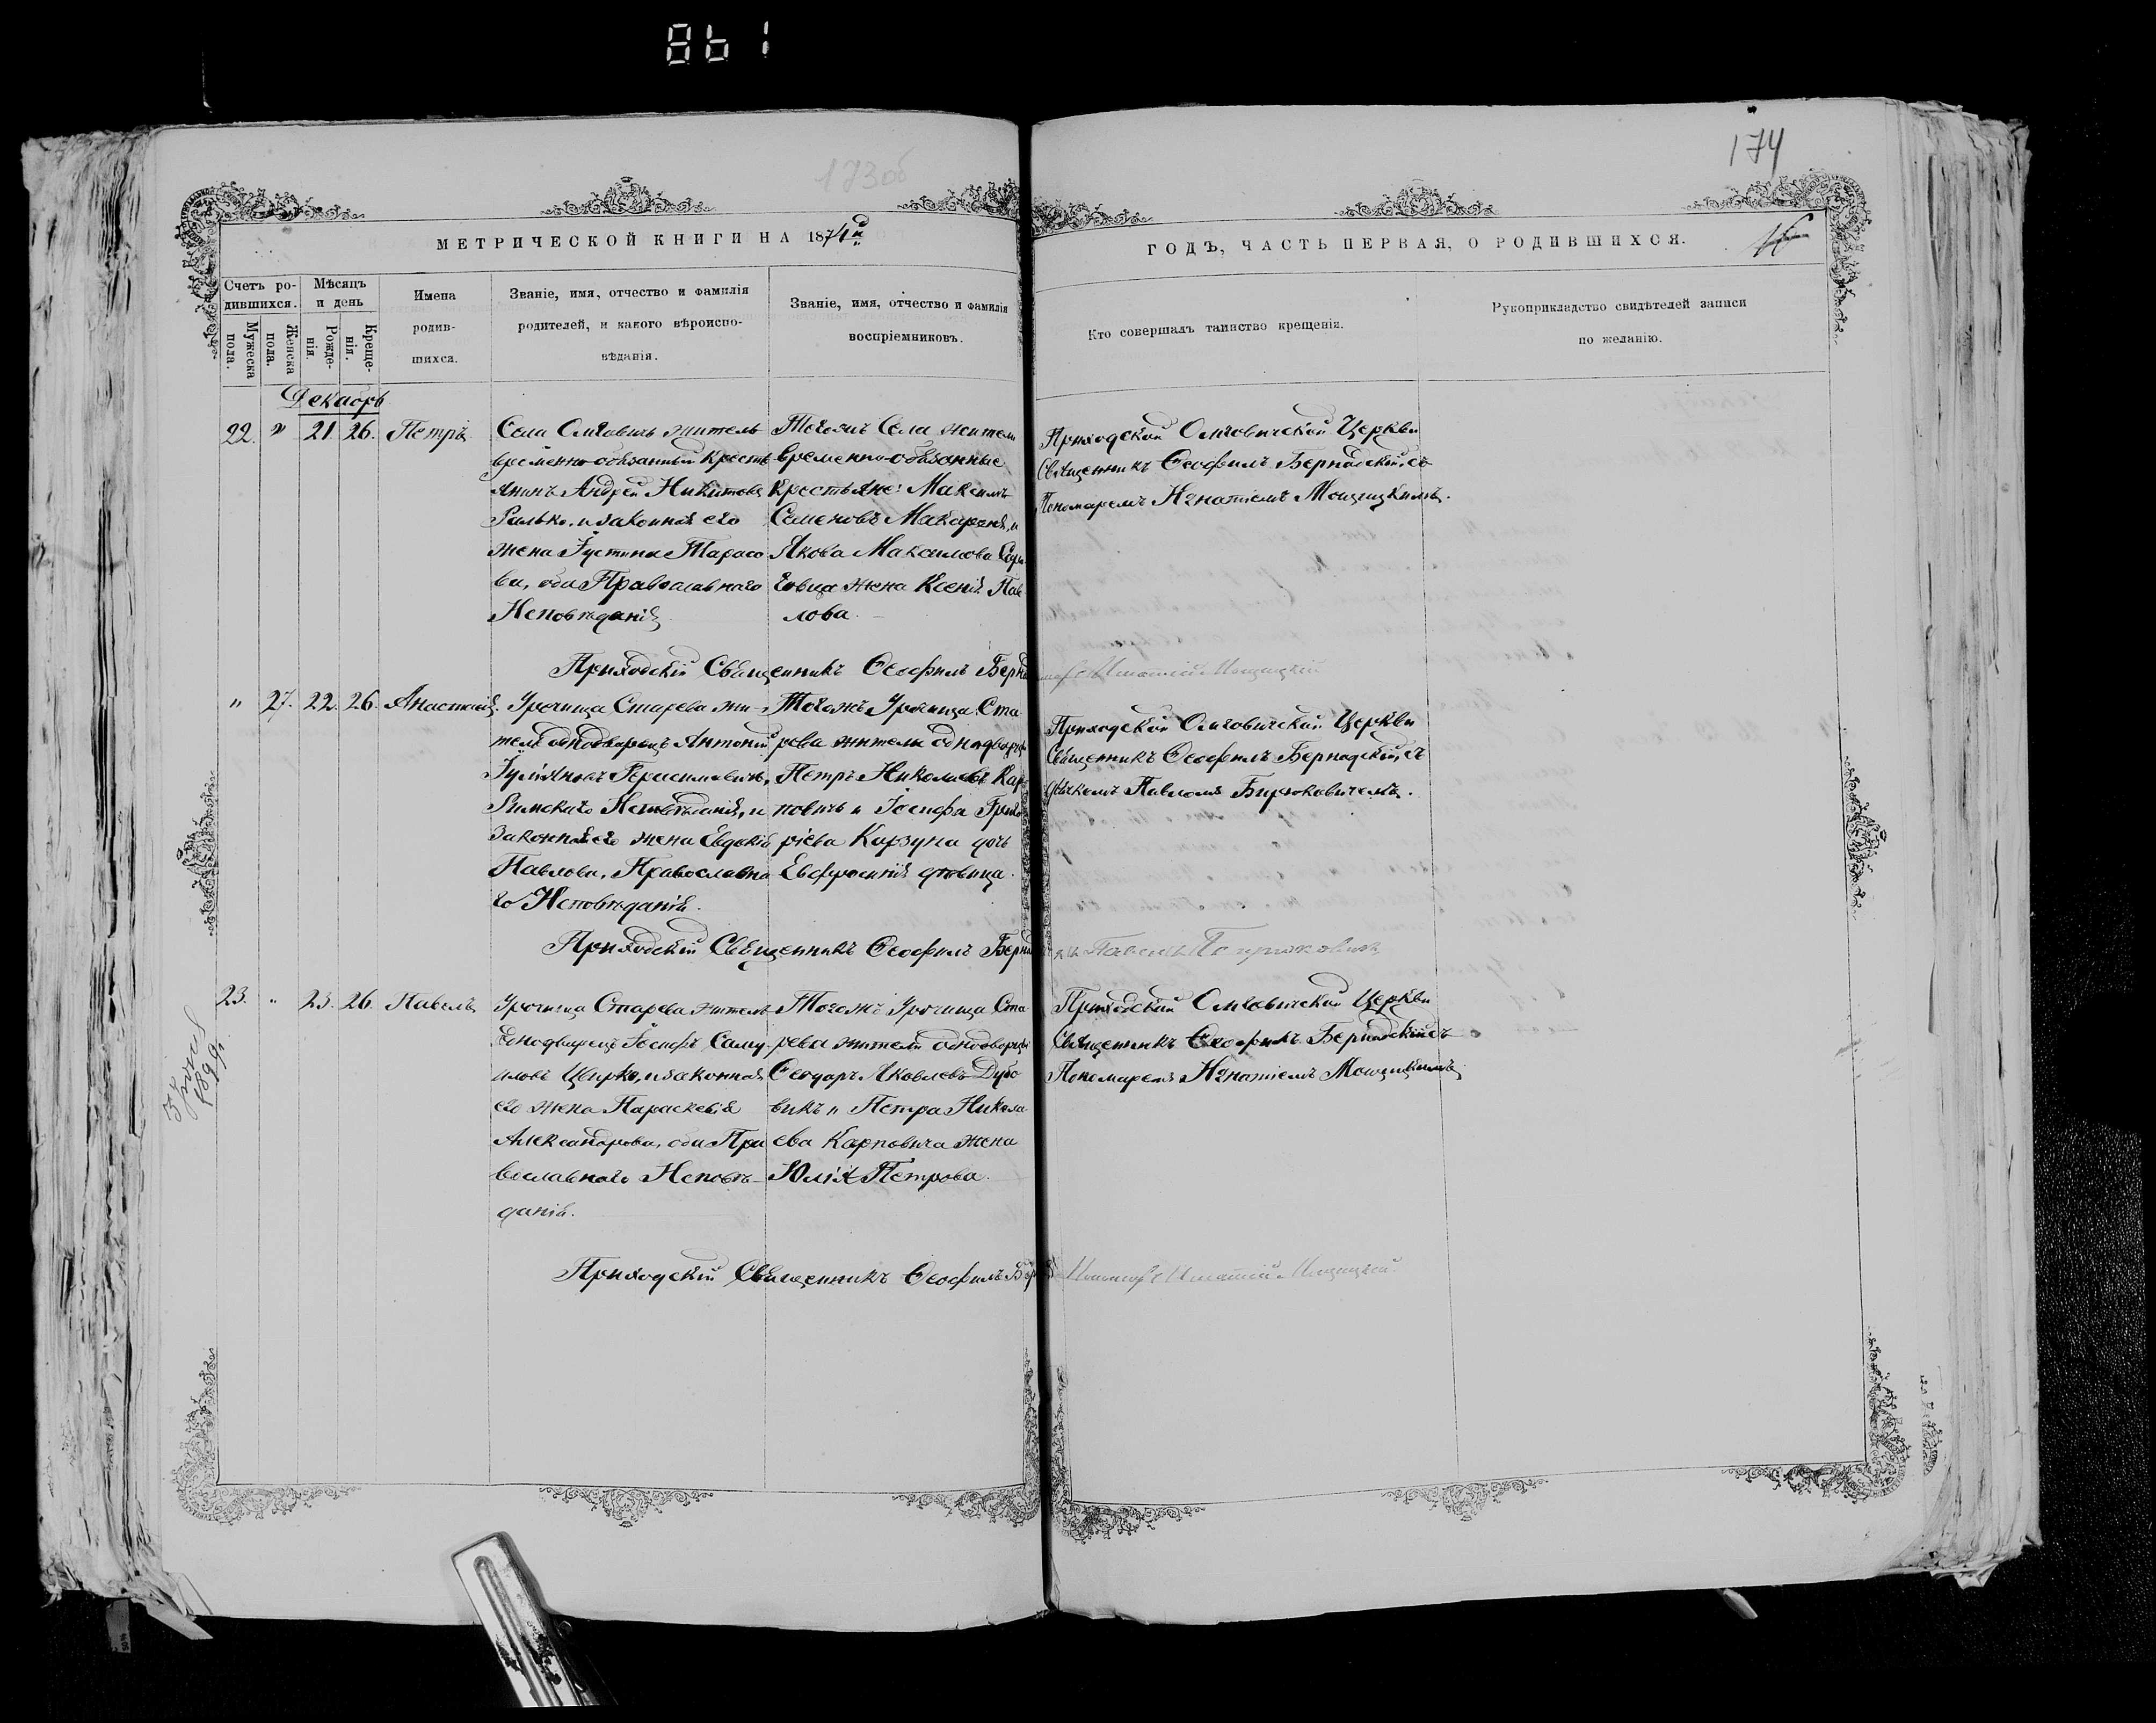 861
173об
174
МЕТРИЧЕСКОЙ КНИГИ НА 1871й
ГОДЪ, ЧАСТЬ ПЕРВАЯ, О РОДИВШИХСЯ.
16
Счетъ ро-
дившихся.
Мужеска
пола
Женска
пола.
Мѣсяцъ
и день
Рожде-
нія.
Креще-
нія.
Имена
родив-
шихся.
Званіе, имя, отчество и фамилія
родителей, и какого вѣроиспо-
вѣданія.
Званіе, имя, отчество и фамилія
воспріемниковъ.
Кто совершалъ таинство крещенія.
Рукоприкладство свидѣтелей записи
по желанію.
Декабрь
22. " 21. 26. Петръ
Села Ольговичь житель
временно-обязанный кресть
янинъ Андрей Никитовъ
и законная его
жена Іустина Тарасо
ва, оба Православнаго
Исповѣданія
Тогожъ Села жители
временно-обязанные
Крестьяне: Максимъ
Семеновъ и
Якова Максимова
жена Ксенія Пав
лова.
Приходской Ольговичской Церкви
Священникъ Ѳеофилъ Бернадскій, съ
Пономаремъ Игнатіемъ Мощицкимъ.
Приходскій Священникъ Ѳеофилъ Берна
Игнатій Мощицкій
" 27. 22. 26. Анастасія.
Урочища Старева жи-
тель однодворецъ Антоній
Римскаго Исповѣданія, и
законная его жена Евдокія
Павлова, Православна
го Исповѣданія.
Тогожъ Урочища Ста
рева жители однодворцы
Петръ Николаевъ Кар
повичь и Іосифа Григо
ріева Карзуна дочь
Евфросинія дѣвица.
Приходской Ольговичской Церкви
Священникъ Ѳеофилъ Бернадскій, съ
дьячкомъ Павломъ Бирюковичемъ.
Приходскій Священникъ Ѳеофилъ Берна
23. " 23. 26. Павелъ
Урочища Старева житель
Однодворецъ Іосифъ Саму
иловъ Цвирко, и законная
его жена Параскевія
Александрова, оба Пра
вославнаго Исповѣ-
данія.
Тогожъ Урочища Ста
рева жители однодворцы
Ѳеодоръ Яковлевъ Дубо
викъ и Петра Никола
ева Карповича жена
Юлія Петрова.
Приходской Ольговичской Церкви
Священникъ Ѳеофилъ Бернадскій съ
Пономаремъ Игнатіемъ Мощицкимъ
Приходскій Священникъ Ѳеофилъ Бер
Игнатій Мощицкій.